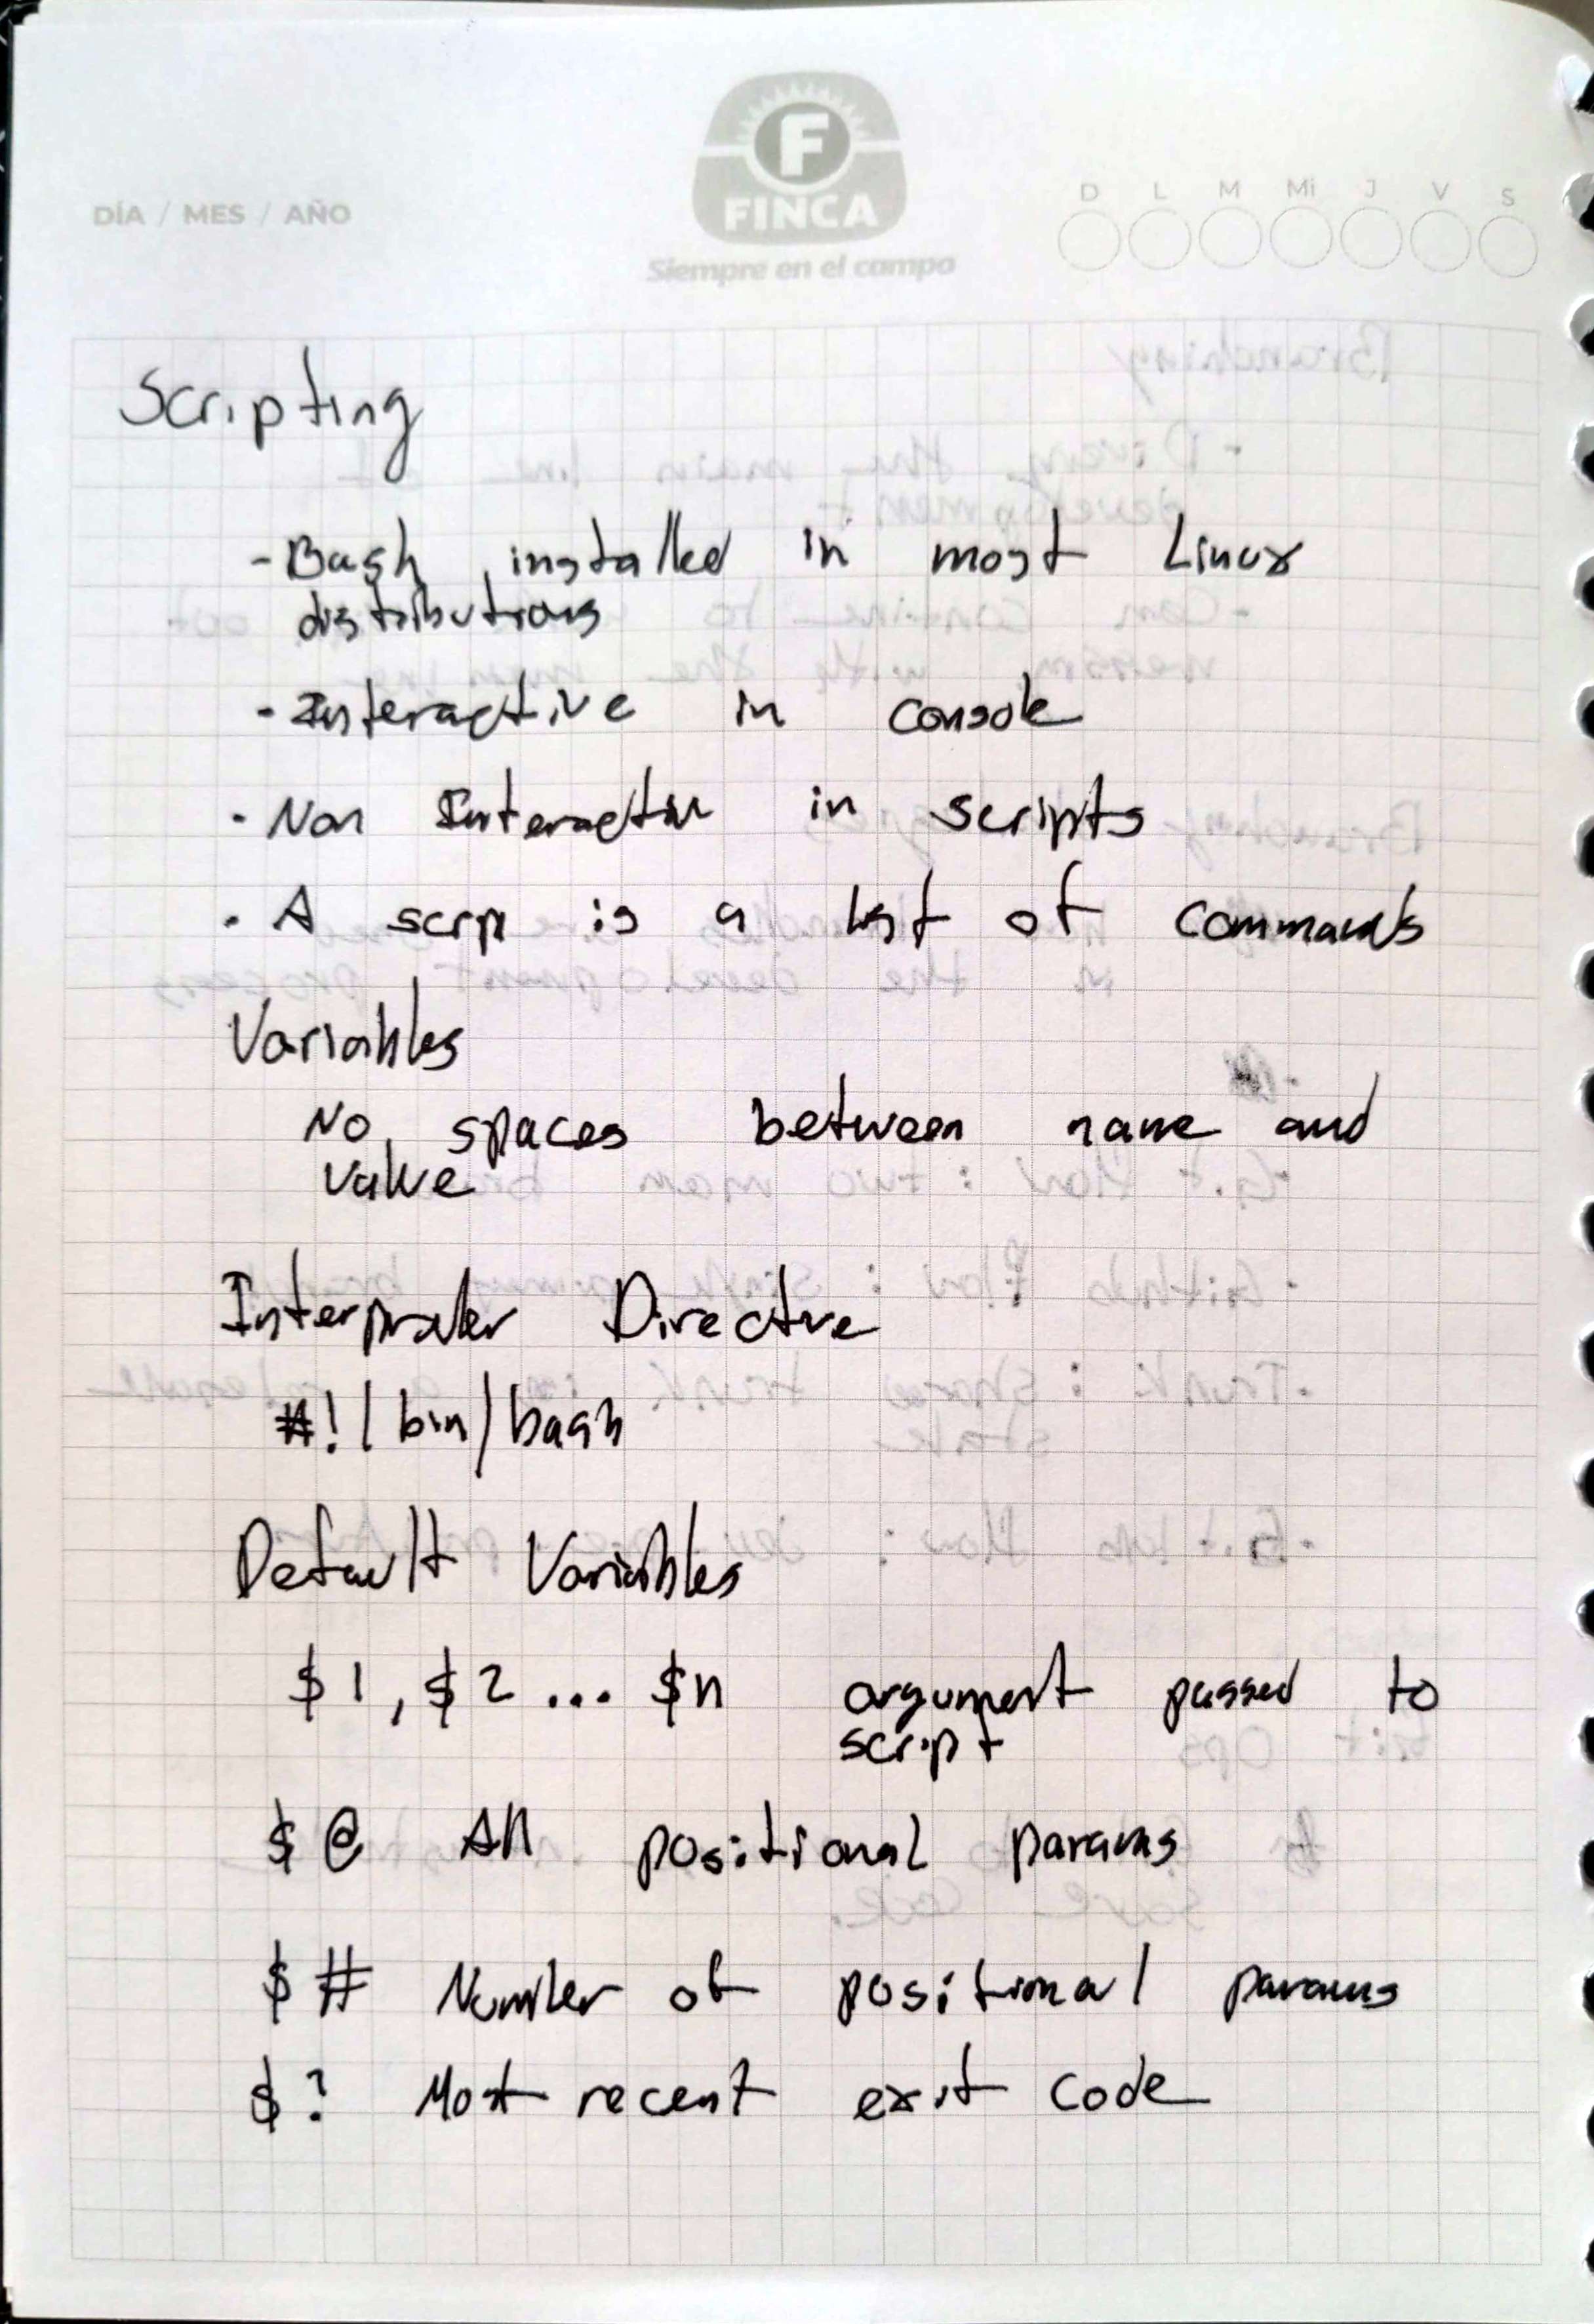 DÍA / MES / AÑO
F
FINCA
Siempre en el campo
D L M Mi J V S
Scripting
- Bash installed in most Linux
distributions
- Interactive in console
· Non Interactive in scripts
· A scrip is a list of commands
Variables
No spaces between name and
value
Interpreter Directive
#!/bin/bash
Default Variables
$1, $2 ... $n argument passed to
script
$@ All positional params
$# Number of positional params
$? Most recent exit code